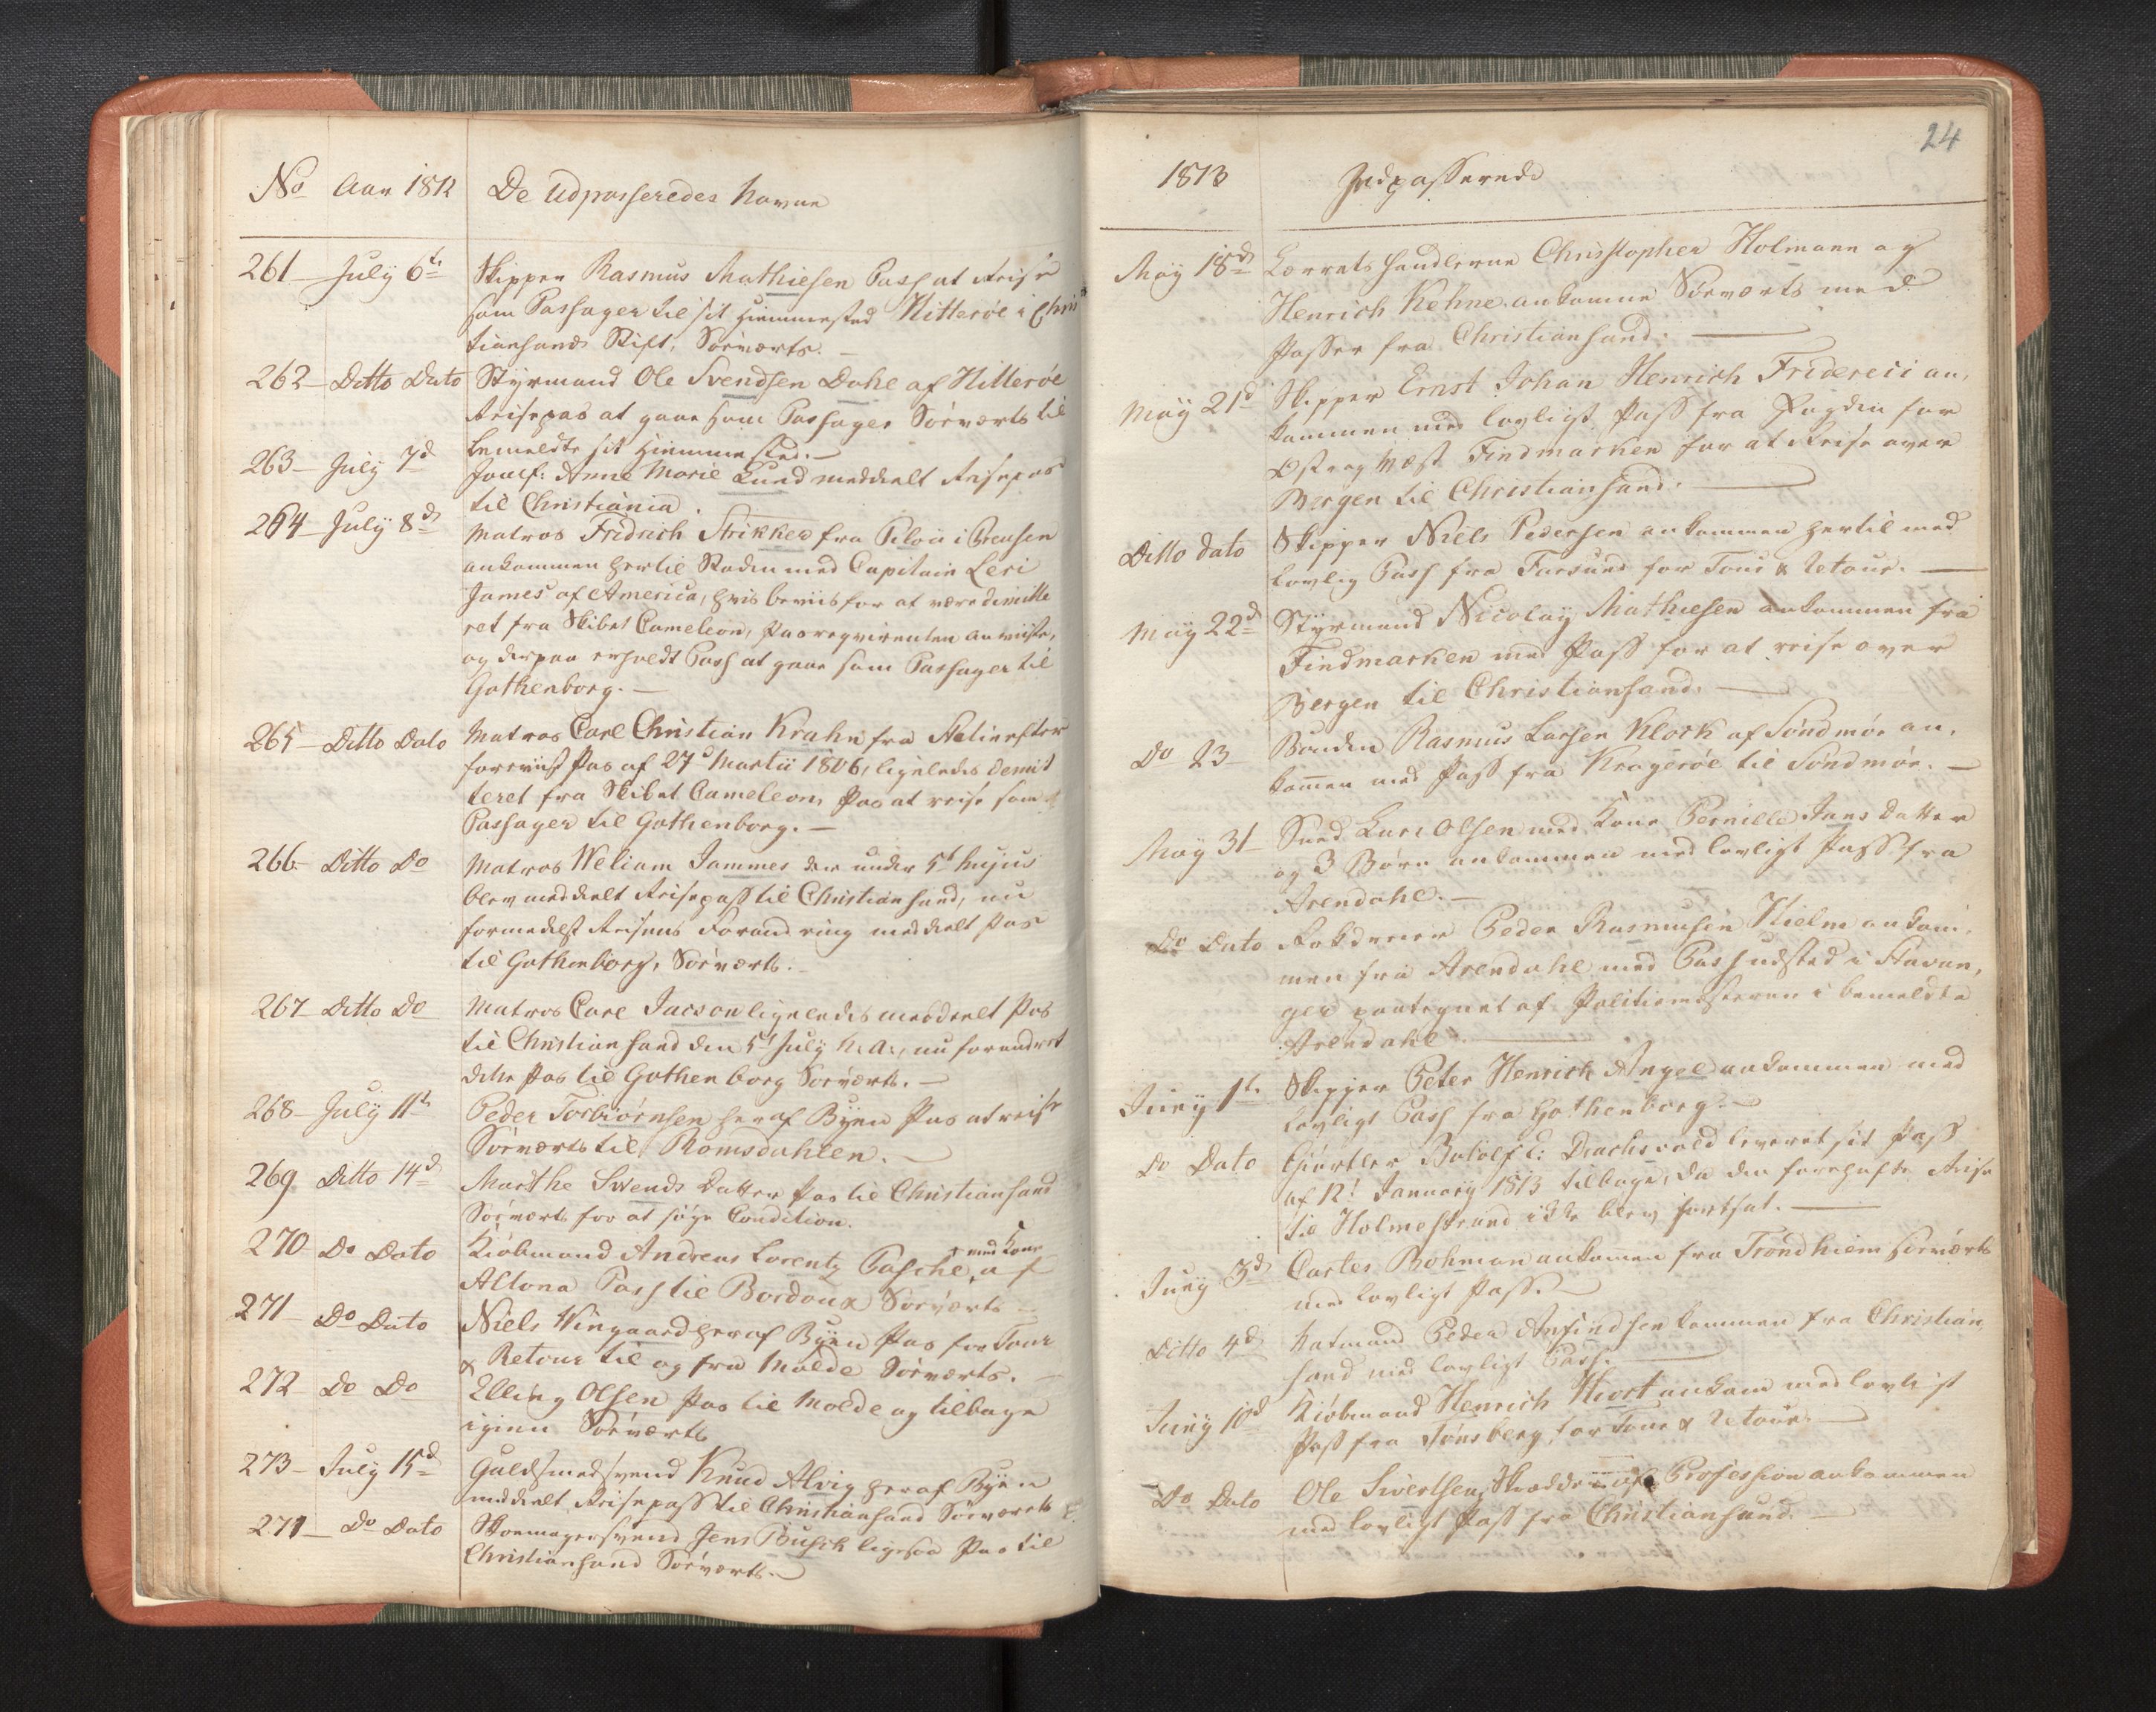 No Aar 1812 De Udpasseredes Navne
261 – July 6te Skipper Rasmus Mathiesen Pass at Reise
som Passager til sit Hiemmested Hitterøe i Chris
tiansands Stift, Sørværts. –
262 – Ditto Dato Styrmand Ole Svendsen Dahl af Hitterøe
Reisepas at gaae som Passager Sørværts til
bemeldte sit Hiemmested. –
263 – July 7d Jomf: Anne Marie Lund meddeelt Reisepas
til Christiania.
264 – July 8d Matros Fridrich Strikker fra Pilau i Preusen
ankommen hertil Staden med Capitain Levi
James af America, hvis beviis for at være dimitte
ret fra Skibet Cameleon, Pasreqvirenten anviiste,
og derpaa erholdt Pass at gaae som Passager til
Gothenborg. –
265 – Ditto Dato Matros Carl Christian Krahn fra Stetin efter
foreviist Pas af 27d Martii 1806, ligeledes demit
teret fra Skibet Cameleon, Pas at reise som
Passager til Gothenborg. –
266 – Ditto Do Matros Weliam Jammes der under 5t hujus
blev meddeelt Reisepass til Christiansand, nu
formedelst Reisens Forandring meddeelt Pas
til Gothenborg, Sørværts. –
267 Ditto Do Matros Carl Jacson ligeledes meddeelt Pas
til Christiansand den 5t July h. a., nu forandret
dette Pas til Gothenborg Sørværts. –
268 – July 11te Peder Torbiørnsen her af Byen Pas at reise
Sørværts til Romsdahlen. –
269 Ditto 14d Marthe Svends Datter Pas til Christiansand
Sørværts for at søge Condition.
270 – Do Dato Kiøbmand Andreas Lorentz Pasche med Kone af
Altona Pass til Bordoux Sørværts –
271 – Do Dato Niels Wingaard her af Byen Pas for Tour
& Retour til og fra Molde Sørværts. –
272 – Do Do Elling Olsen Pas til Molde og tilbage
igien Sørværts
273 – July 15d Guldsmedsvend Knud Alvig her af Byen
meddeelt Reisepass til Christiansand Sørværts
274 – Do Dato Skomagersvend Jens Busch ligesaa Pas til
Christiansand Sørværts. –
24
1813 Indpasserede
May 18d Hollmann og
Henrich Kehne ankomne Sørværts med
Passer fra Christiansand. –
May 21d Skipper Ernst Johan Henrich Friderici an,
kommen med lovligt Pass fra Fogden for
Øst og Vest Findmarken for at Reise over
Bergen til Christiansand. –
Ditto dato Skipper Niels Pedersen ankommen hertil med
lovlig Pass fra Farsund for Tour & Retour. –
May 22d Styrmand Nicolay Mathiesen ankommen fra
Findmarken med Pass for at reise over
Bergen til Christiansand. –
Do 23 Bonden Rasmus Larsen Klock af Søndmør an,
kommen med Pass fra Kragerøe til Søndmør. –
May 31 – Lars Olsen med Kone Pernille Jans Datter
og 3 Børn ankommen med lovligt Pass fra
Arendahl. –
Do Dato Peder Rasmusen Hielm ankom,
men fra Arendahl med Pass udsted i Stavan,
ger paategnet af Politiemesteren i bemeldte
Arendahl. –
Juny 1te Skipper Peter Henrich Angel ankommen med
lovligt Pass fra Gothenborg. –
Do Dato Giørtler Drachsvold leveret sit Pass
af 12t January 1813 tilbage, da den forehafte Reise
til Holmestrand ikke blev fortsat. –
Juny 3d Carles Bohman ankomen fra Trondhiem herværts
med lovligt Pass. –
Ditto 4d Peder Anfindsen kommen fra Christian,
sand med lovligt Pass. –
Juny 10d Kiøbmand Henrich Hiort ankom med lovligt
Pass fra Tønsberg for Tour & Retour. –
Do Dato Ole Sivertsen, Skrædder af Profession ankommen
med lovligt Pass fra Christiansund. –